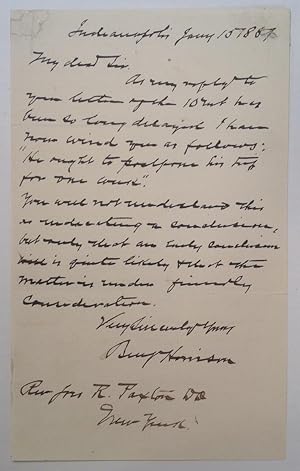 Indianapolis Jany 15 188
My dear Sir.
As my reply to
your letter of the 10 inst has
been so long delayed I have
now wired you as follows:
"He ought to postpone his trip
for one week".
You will not understand this
as indicating a conclusion,
but only that an early conclusion
is quite likely & that the
matter is under friendly
consideration.
Very Sincerely Yours
Benj Harrison
Rev R. Paxton DD
New York.